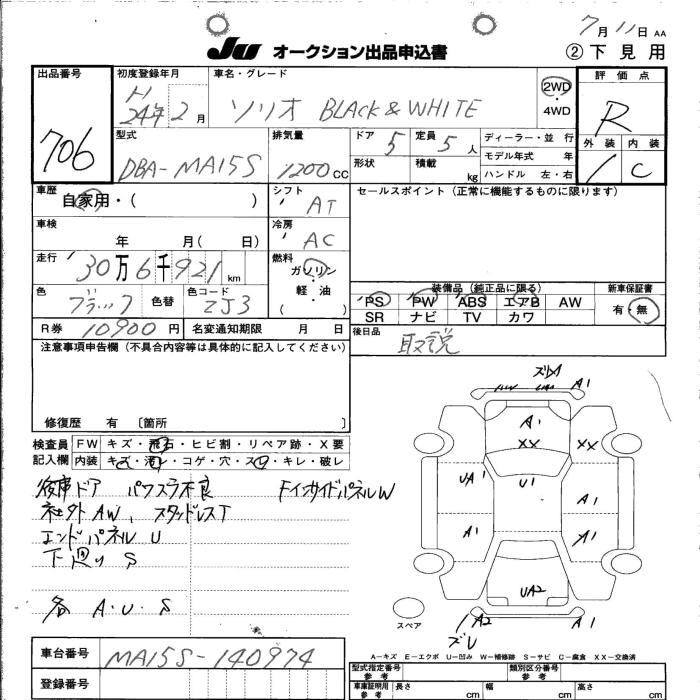 7月11日 AA
JU オークション出品申込書
② 下見用
出品番号
706
初度登録年月
H24年2月
車名・グレード
ソリオ BLACK & WHITE
2WD・4WD
評価点
R
外装 内装
1 C
型式
DBA-MA15S
排気量
1200CC
ドア 5
定員 5人
形状
積載 kg
ディーラー・並行
モデル年式 年
ハンドル 左・右
車歴
自家用・( )
シフト
AT
セールスポイント(正常に機能するものに限ります)
車検
年 月( 日)
冷房
AC
走行
30万6千921km
燃料
ガソリン・軽・油
( )
色
ブラック
色替
色コード
ZJ3
装備品(純正品に限る)
PS PW ABS エアB AW
SR ナビ TV カワ
新車保証書
有・無
R券 10900円
名変通知期限 月 日
後日品
取説
注意事項申告欄(不具合内容等は具体的に記入してください)
修復歴 有 〔箇所 〕
検査員記入欄
FW キズ・飛石・ヒビ割・リペア跡・X要
内装 キズ・汚レ・コゲ・穴・スレ・キレ・破レ
後席ドア パワスラ不良 FインサイドパネルW
社外AW、スタッドレスT
エンドパネルU
下廻りS
各 A・U・S
ズレA1
A1
A1
XX XX
UA1 U1 A1
A1 A1
UA2
A2 A1
ズU
スペア
A-キズ E-エクボ U-凹み W-補修跡 S-サビ C-腐食 XX-交換済
車台番号
MA15S-140974
登録番号
型式指定番号
参考
類別区分番号
参考
車庫証明用
参考
長さ cm
幅 cm
高さ cm